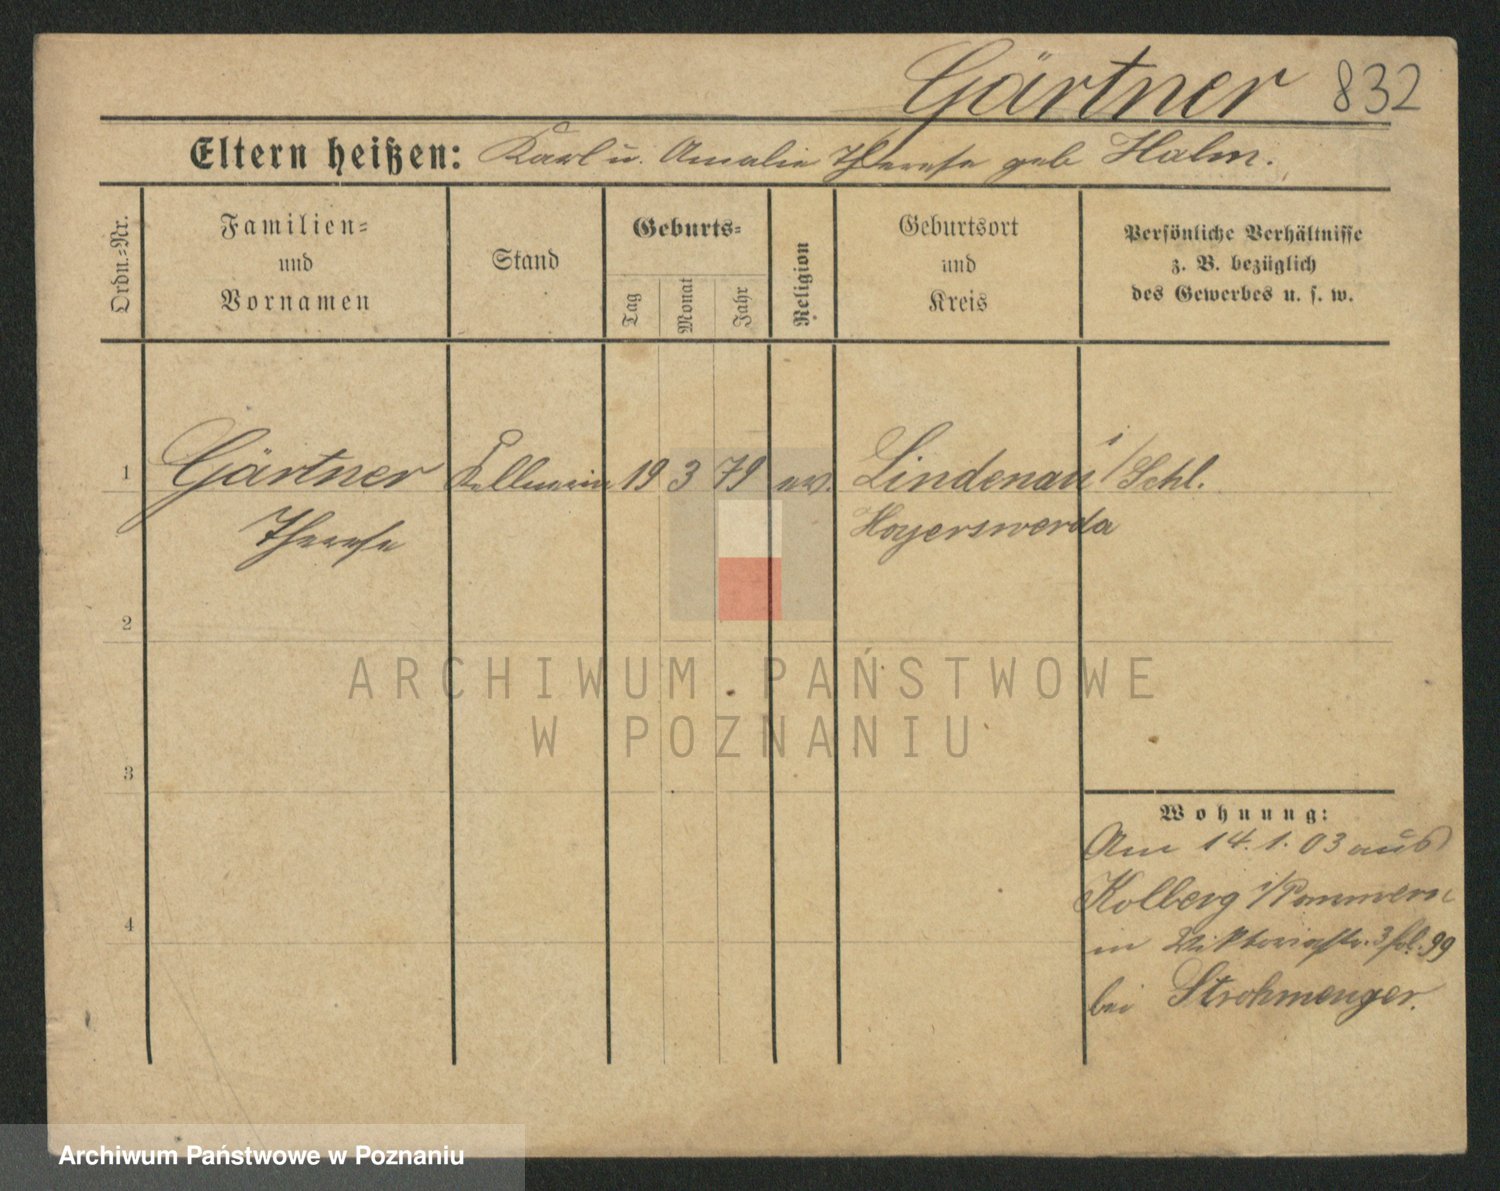 Gärtner 832
Eltern heißen: Karl u. Amalie Therese geb Halm.
Ordn.-Nr.
Familien-
und
Vornamen
Stand
Geburts-
Tag
Monat
Jahr
Religion
Geburtsort
und
Kreis
Persönliche Verhältnisse
z. B. bezüglich
des Gewerbes u. s. w.
1 Gärtner Kellnerin 19 3 79 ev. Lindenau i/Schl.
Therese Hoyerswerda
2
ARCHIWUM PAŃSTWOWE
W POZNANIU
3
Wohnung:
Am 14. 1. 03 aus
Kolberg i/Pommern
4
in Viktoriastr. 3 fol. 99
bei Strohmenger.
Archiwum Państwowe w Poznaniu